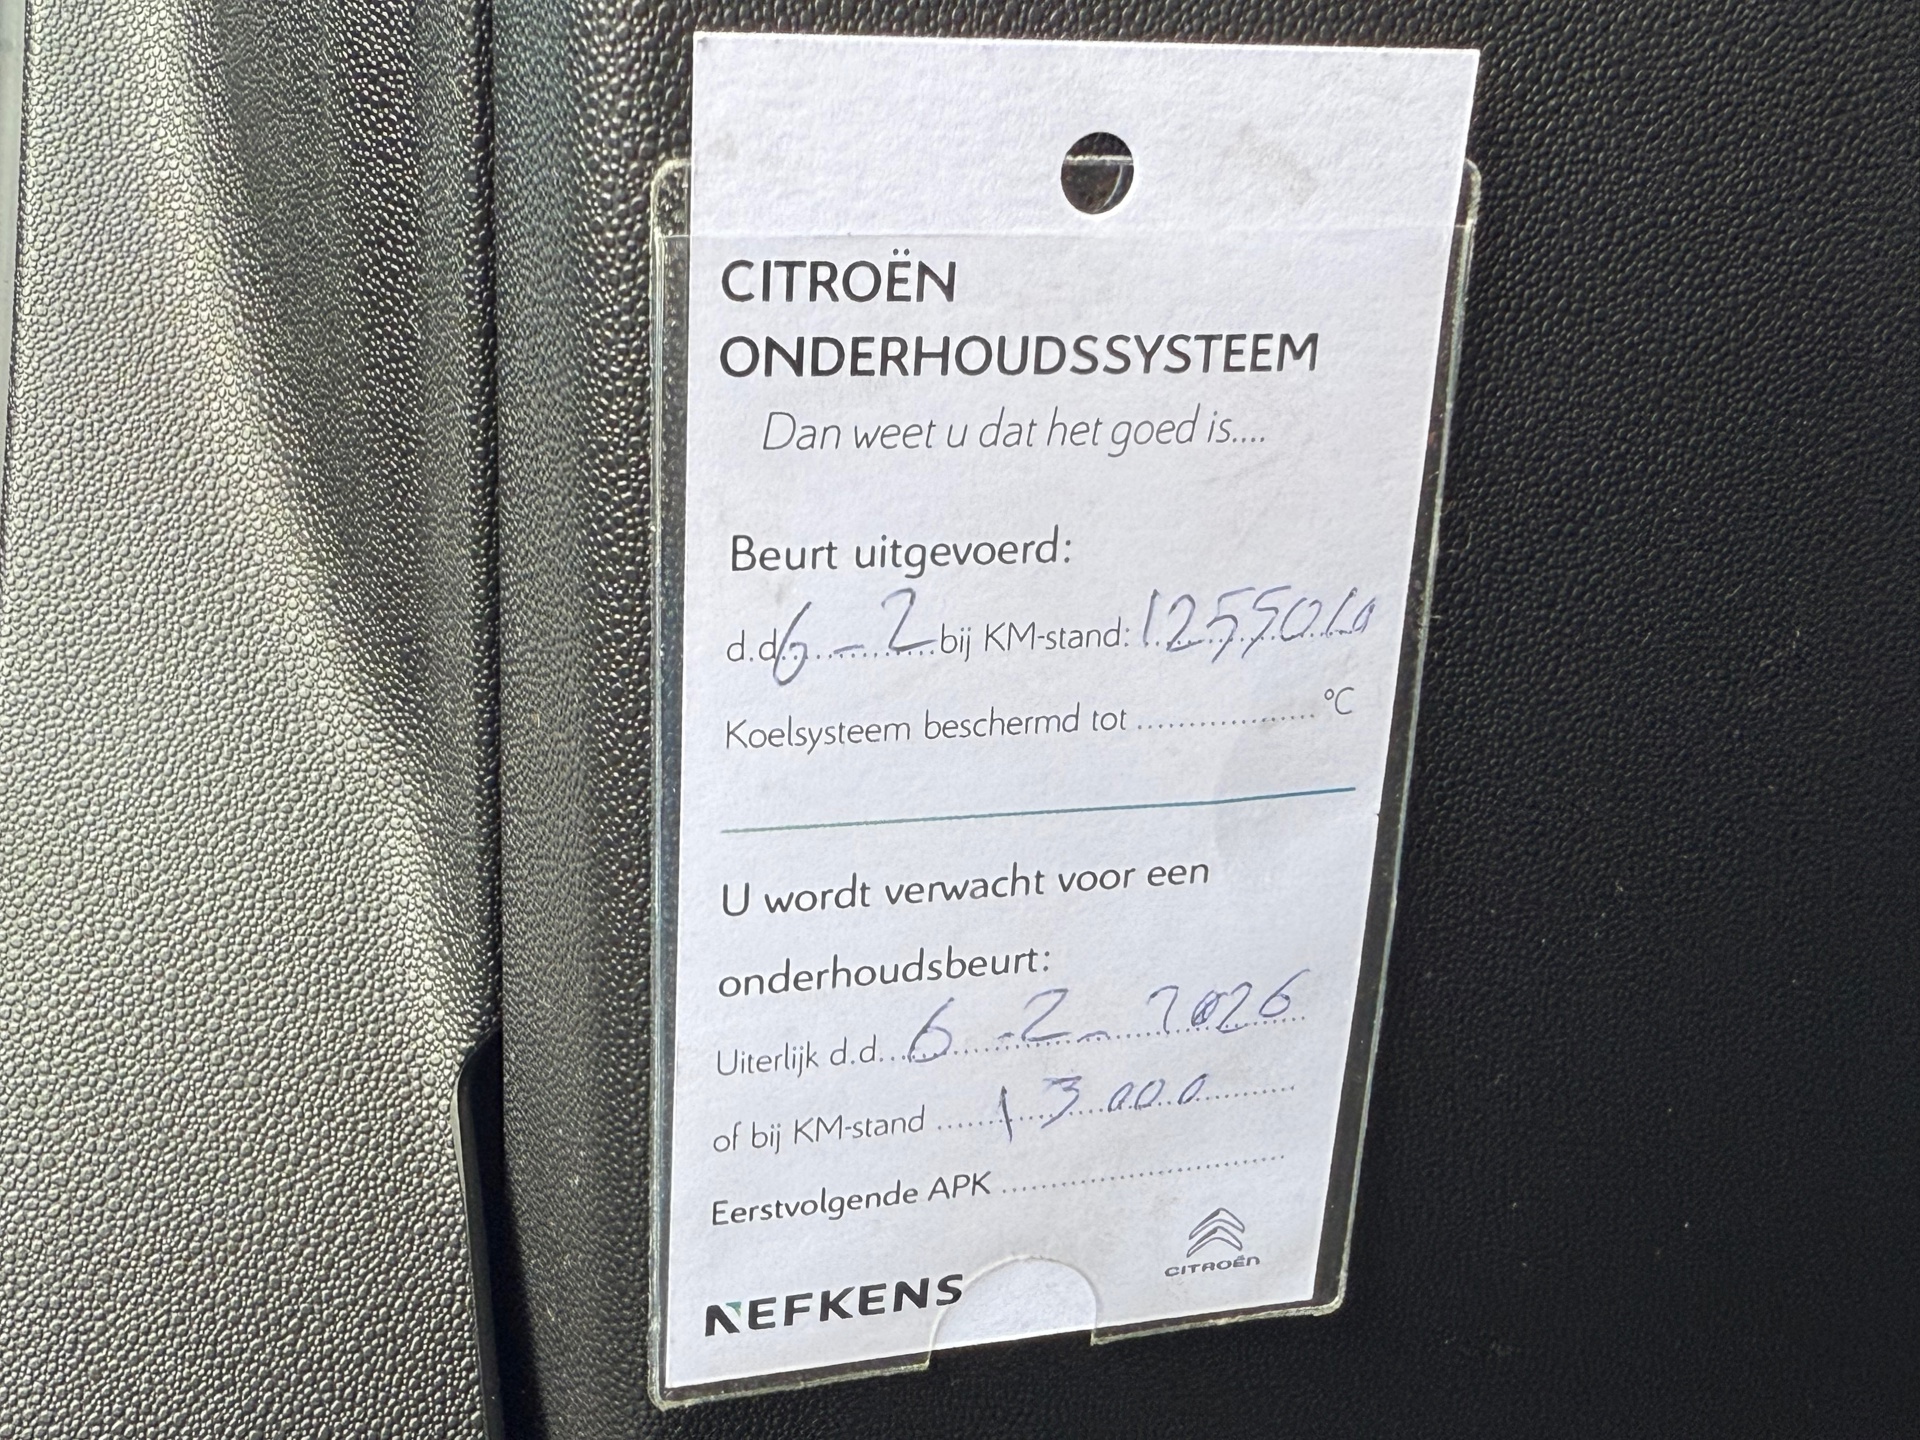 CITROËN
ONDERHOUDSSYSTEEM
Dan weet u dat het goed is....
Beurt uitgevoerd:
d.d. 6 - 2 bij KM-stand: 125501
Koelsysteem beschermd tot .................. °C
U wordt verwacht voor een
onderhoudsbeurt:
Uiterlijk d.d. 6 - 2 - 2026
of bij KM-stand 13000
Eerstvolgende APK ..............................
CITROËN
NEFKENS